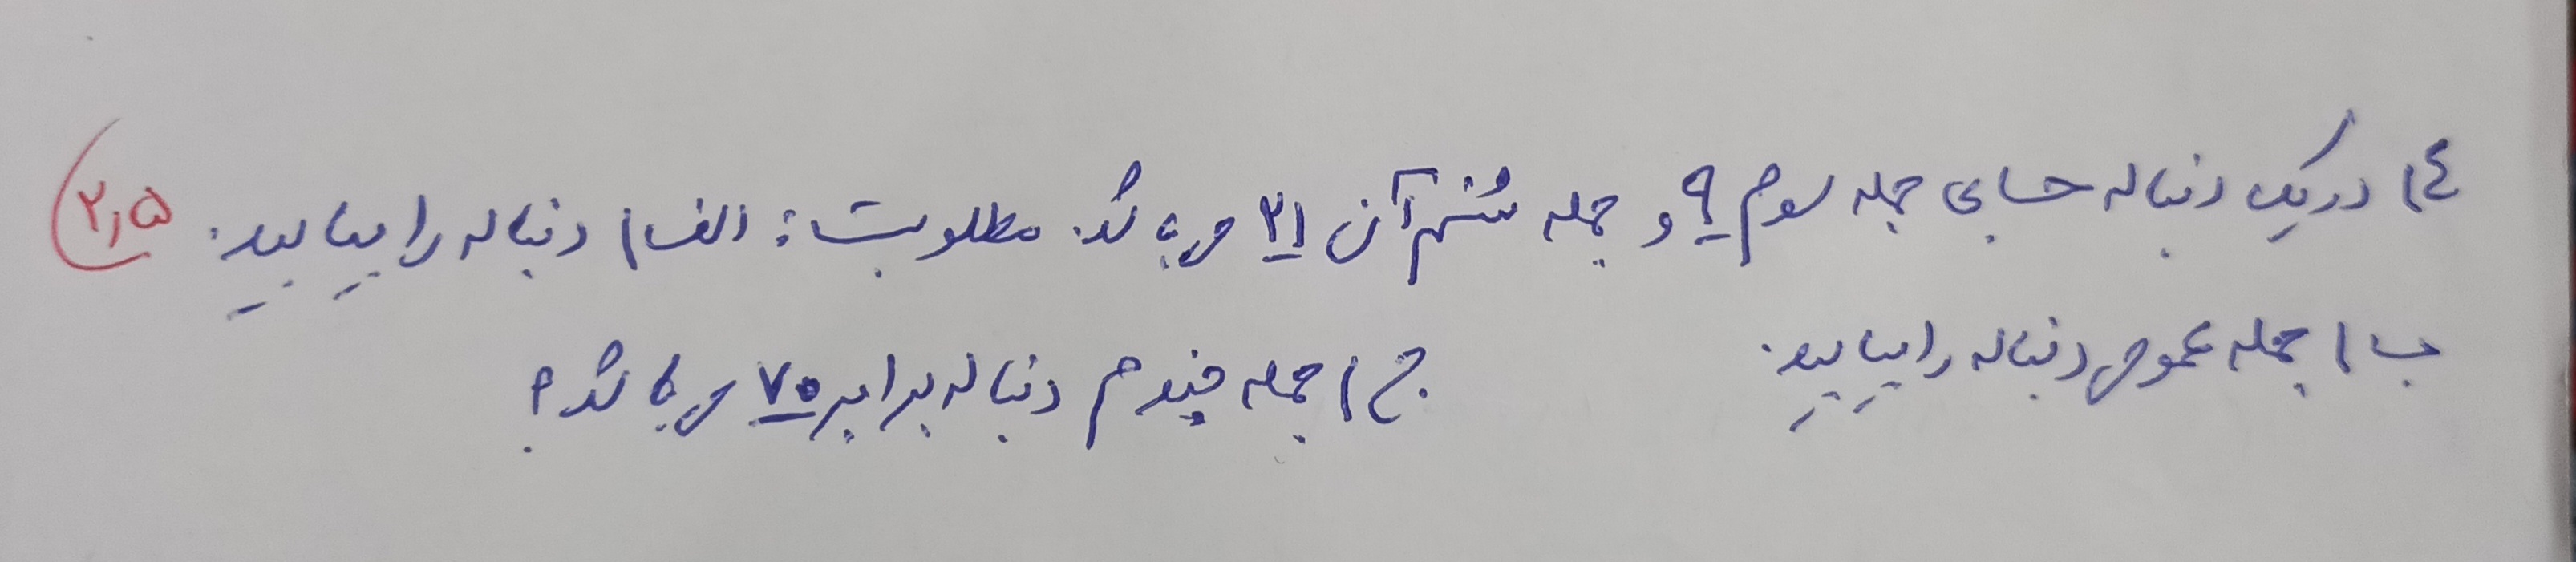 ۴) در یک دنباله حسابی جمله سوم ۹ و جمله ششم آن ۲۱ می باشد. مطلوبست: الف) دنباله را بیابید. ۲٫۵
ب) جمله عمومی دنباله را بیابید. ج) جمله چندم دنباله برابر ۷۵ می باشد؟